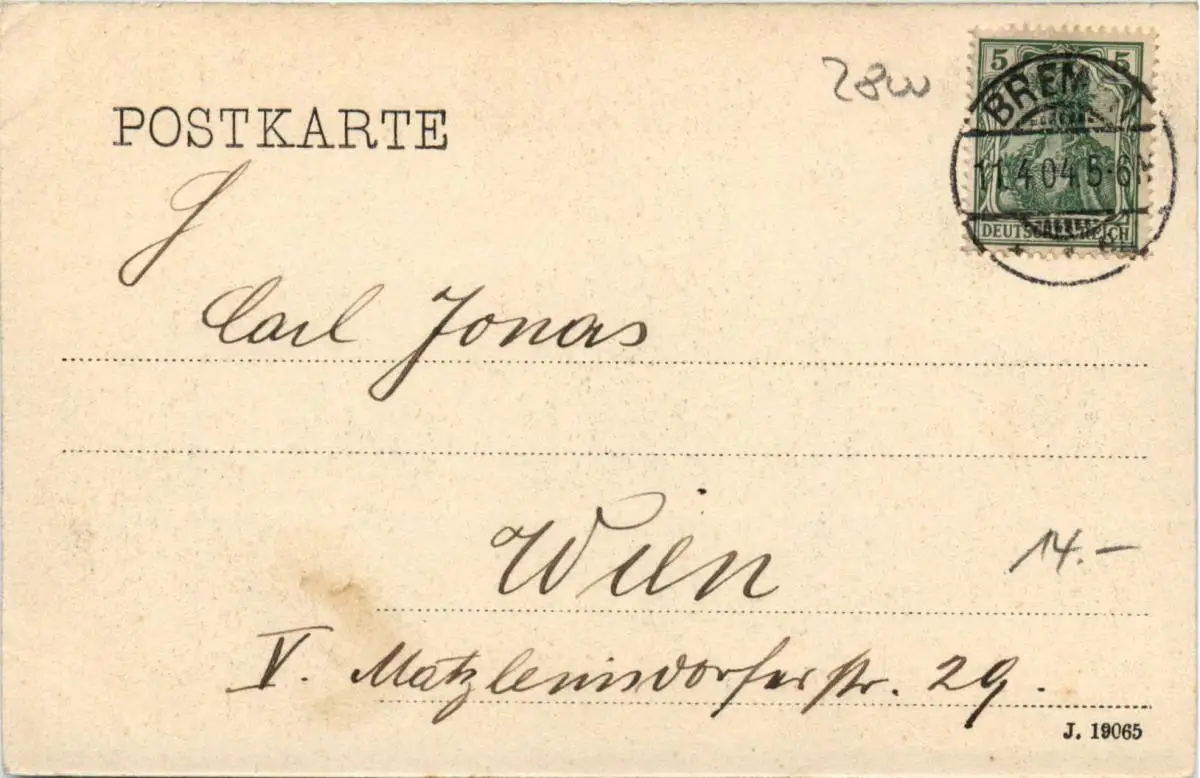 POSTKARTE
28w
5 5
BREM
11.4.04.5-6N
DEUTSCHES REICH
H
Carl Jonas
Wien
14.–
V. Matzleinsdorferstr. 29.
J. 19065